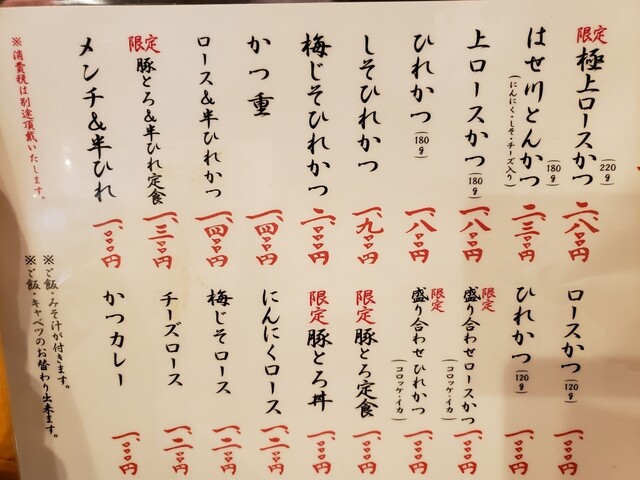 限定 極上ロースかつ (220g) 二、八〇〇円
はせ川とんかつ (180g) (にんにく・しそ・チーズ入り) 二、三〇〇円
上ロースかつ (180g) 一、八〇〇円
ひれかつ (180g) 一、八〇〇円
しそひれかつ 一、九〇〇円
梅じそひれかつ 二、〇〇〇円
かつ重 一、四〇〇円
ロース&半ひれかつ 一、四〇〇円
限定 豚とろ&半ひれ定食 一、三〇〇円
メンチ&半ひれ 一、〇〇〇円
※消費税は別途頂戴いたします。
ロースかつ (120g) 一、〇〇〇円
ひれかつ (120g) 一、〇〇〇円
限定 盛り合わせロースかつ (コロッケ・イカ) 一、〇〇〇円
限定 盛り合わせひれかつ (コロッケ・イカ) 一、〇〇〇円
限定 豚とろ定食 一、〇〇〇円
限定 豚とろ丼 一、〇〇〇円
にんにくロース 一、二〇〇円
梅じそロース 一、二〇〇円
チーズロース 一、二〇〇円
かつカレー 一、〇〇〇円
※ご飯・みそ汁が付きます。
※ご飯・キャベツのお替わり出来ます。